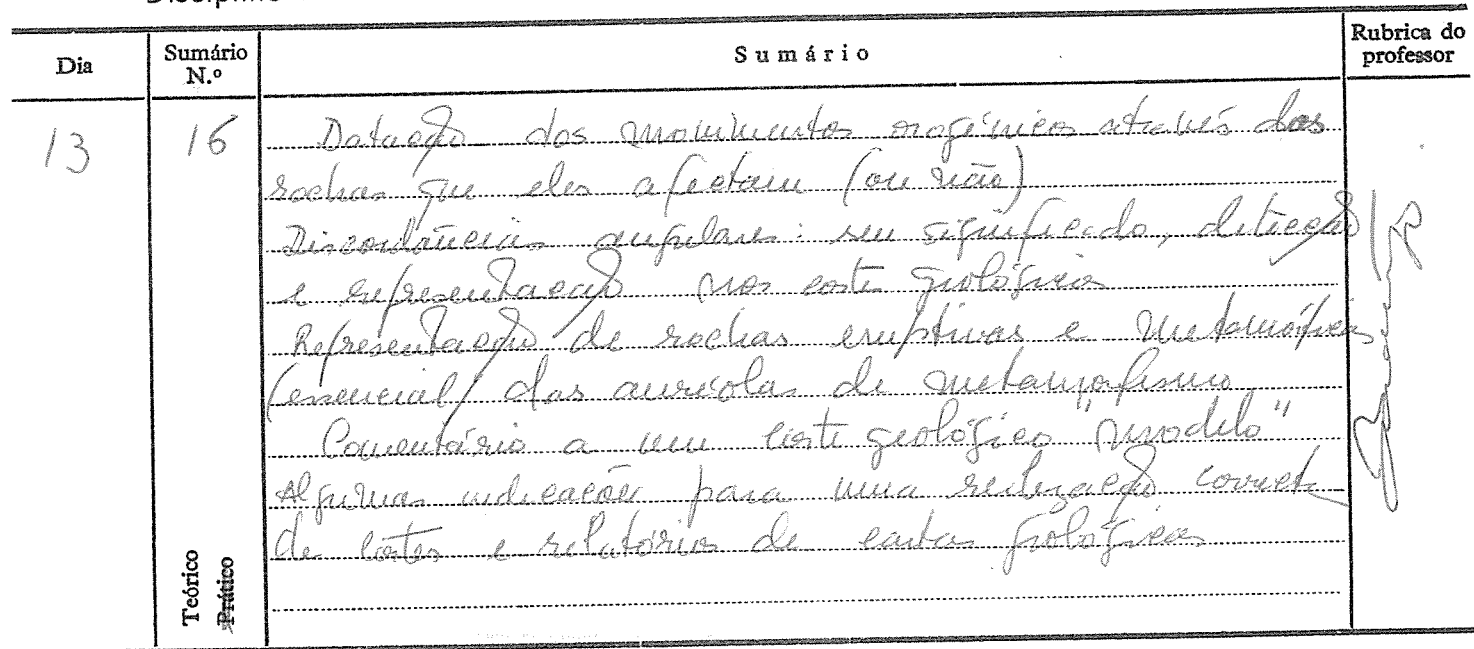 Dia
Sumário N.º
Sumário
Rubrica do professor
13
16
Datação dos movimentos orogénicos através das
rochas que eles afectam (ou não)
Discordâncias angulares: seu significado, detecção
e representação nos cortes geológicos
Representação de rochas eruptivas e metamórficas
(essencial/ das auréolas de metamorfismo
Comentário a um corte geológico "modelo"
Algumas indicações para uma realização correcta
de cortes e relatórios de cartas geológicas
Teórico
Prático